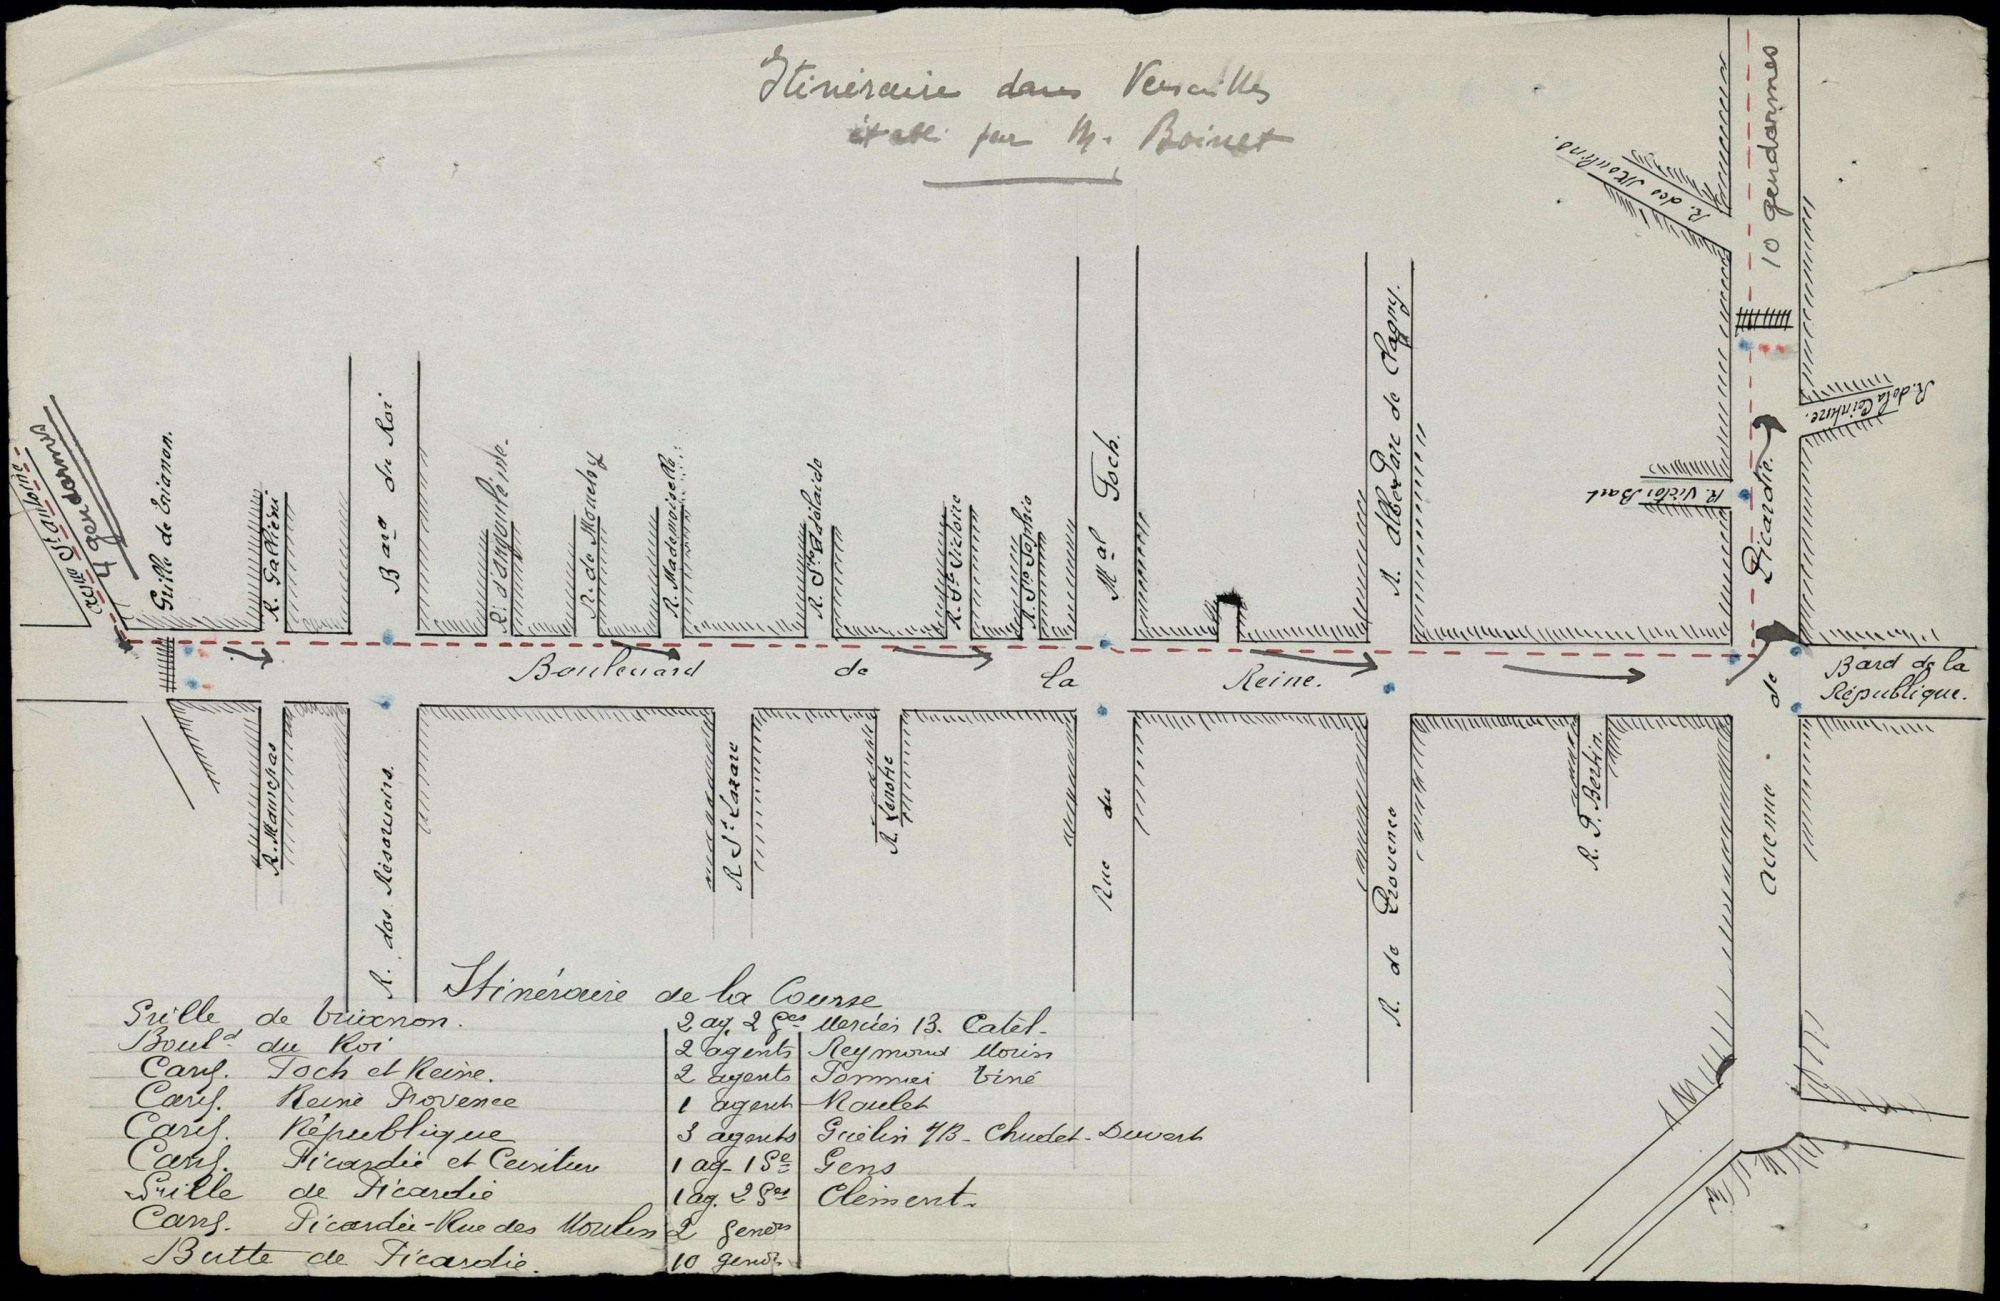 Itinéraire dans Versailles
établi par M. Boinet
10 gendarmes
R. des Moulins.
R. de la Ceinture.
R. Victor Bart
Avenue de Picardie.
Bard de la
République.
rue St Antoine
4 gendarmes
Grille de Trianon.
R. Gallieni
Bard du Roi
R. d'angoulême.
R. de Mouchy
R. Mademoiselle
R. Ste Adélaïde
R. Ste Victoire
R. Ste Sophie
Mal Foch.
R. Albert Parc de Clagny.
Boulevard de la Reine.
R. Maurepas
R. des Réservoirs.
R. St Lazare
R. Lenotre
Rue du
R. de Provence
R. P. Bertin.
Itinéraire de la Course
Grille de Trianon. 2 ag. 2 Ges Mercier B. Catel-
Bould du Roi 2 agents Reymond Morin
Carrf. Foch et Reine. 2 agents Pommei Viné
Carrf. Reine Provence 1 agent Roulet
Carrf. République 3 agents Guélin /B- Chudet- Duvert
Carrf. Picardie et Ceinture 1 ag- 1 Ge Gens
Grille de Picardie 1 ag. 2 Ges Clément.
Carrf. Picardie-Rue des Moulins 2 gend
Butte de Picardie. 10 gend